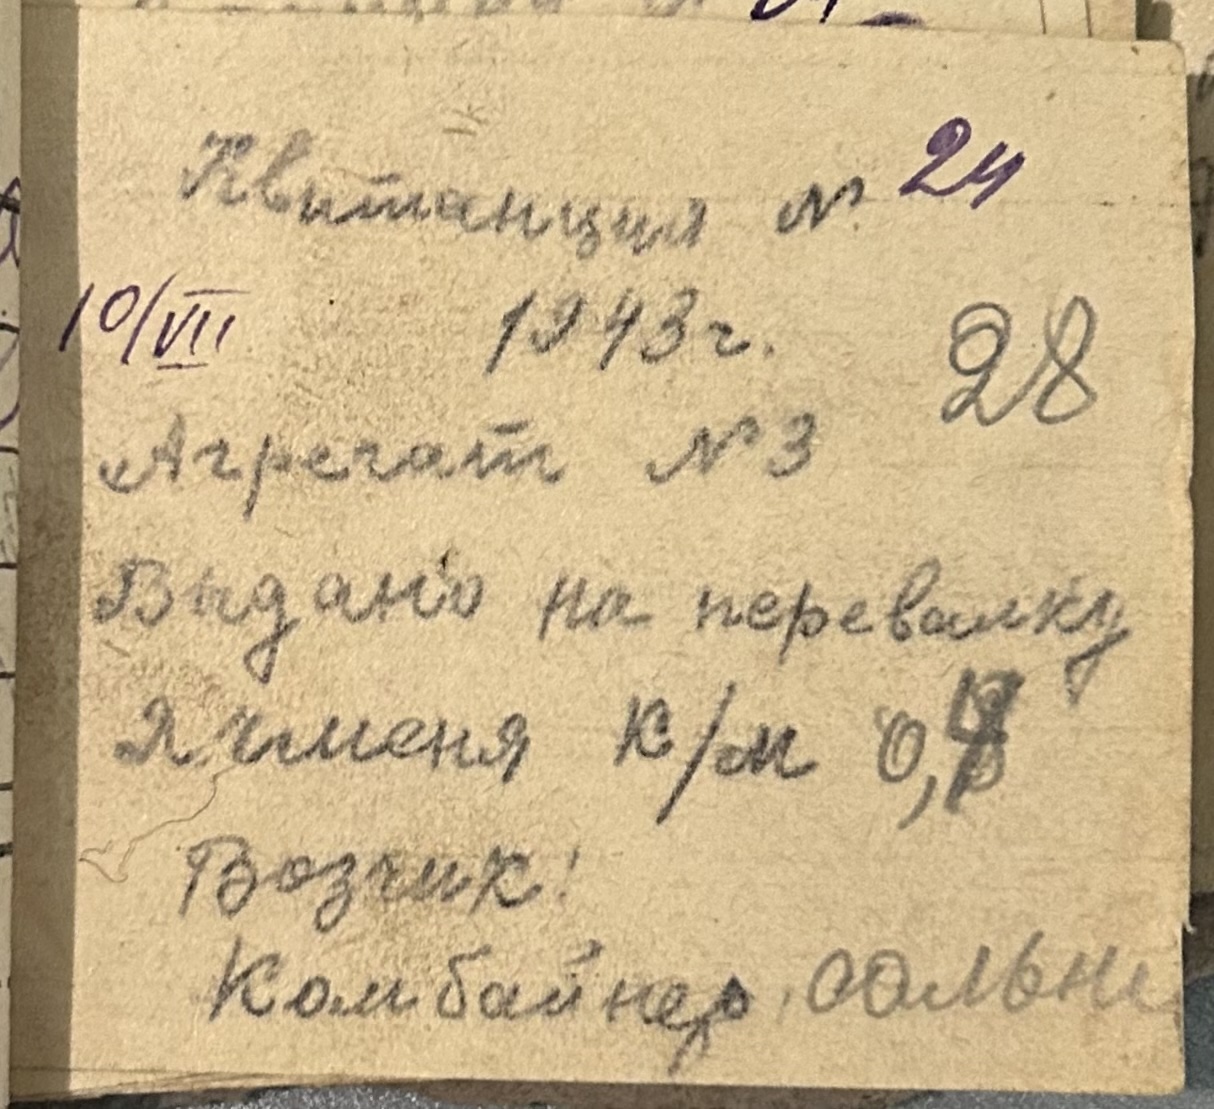 Квитанция № 24
10/VII 1943 г. 28
Агрегат № 3
Выдано на перевалку
Ячменя к/м 0,
Возчик:
Комбайнер